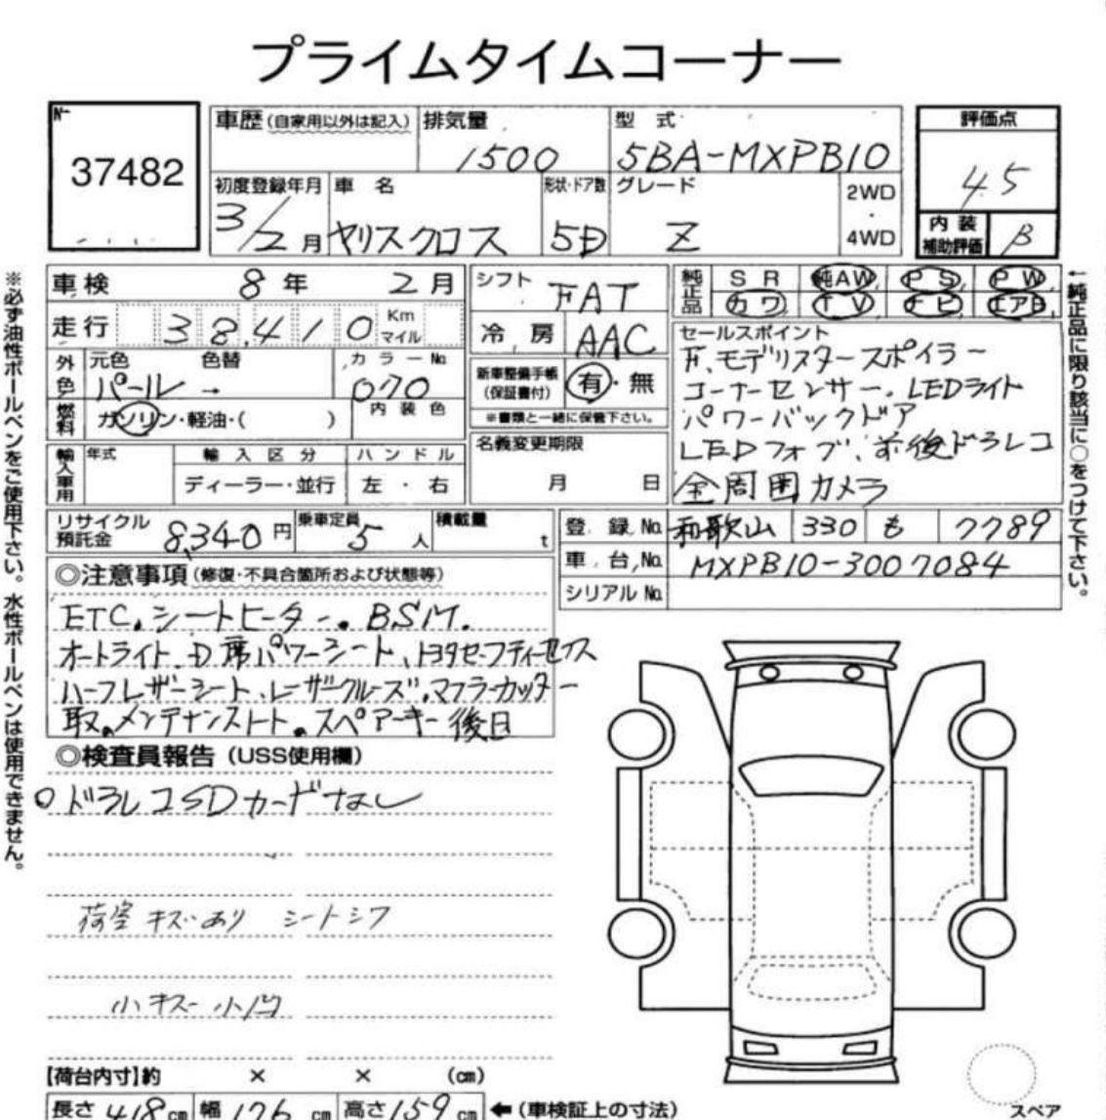 プライムタイムコーナー
37482
車歴(自家用以外は記入) 排気量 1500
型式 5BA-MXPB10
評価点 4.5
内装補助評価 B
初度登録年月 3/2月
車名 ヤリスクロス
形状・ドア数 5D
グレード Z
2WD・4WD
車検 8年 2月
走行 38,410 Km マイル
シフト FAT
冷房 AAC
純正品 SR 純AW PS PW
カワ TV ナビ エアB
外色 元色 パール → 色替 カラーNo. 070
燃料 ガソリン・軽油・( ) 内装色
新車整備手帳(保証書付) 有・無
※書類と一緒に保管下さい。
名義変更期限 月 日
輸入車用 年式 輸入区分 ハンドル
ディーラー・並行 左・右
セールスポイント
F、モデリスタースポイラー
コーナーセンサー、LEDライト
パワーバックドア
LEDフォブ、前後ドラレコ
全周囲カメラ
リサイクル預託金 8,340円 乗車定員 5人 積載量 t
登録No. 和歌山 330 も 7789
車台No. MXPB10-3007084
シリアルNo.
◎注意事項(修復・不具合箇所および状態等)
ETC、シートヒーター、BSM、
オートライト、D席パワーシート、トヨタセーフティーセンス
ハーフレザーシート、レーザークルーズ、マフラーカッター
取、メンテナンスノート、スペアーキー後日
◎検査員報告(USS使用欄)
○ドラレコSDカードなし
荷室キズあり シートシワ
小キズ 小凹
【荷台内寸】約 × × (cm)
長さ 418cm 幅 176cm 高さ 159cm ←(車検証上の寸法)
スペア
※必ず油性ボールペンをご使用下さい。水性ボールペンは使用できません。
←純正品に限り該当に○をつけて下さい。